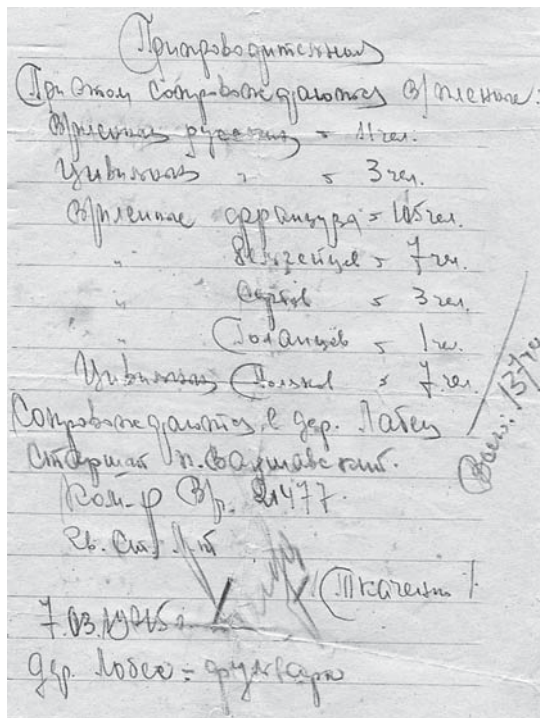 Припроводительная
При этом сопровождаются в/пленные:
В/пленных русских = 11 чел.
Цивильных " = 3 чел.
В/пленные француза = 105 чел.
" бельгейцев = 7 чел.
" сербов = 3 чел.
" Голанцев = 1 чел.
Цивильных Поляков = 7 чел.
Всего: 137 чел
Сопровождаются в дер. Лабец
Старший п. Варшавский.
Ком-р В/ч. 21477.
Гв. Ст. Л-т
/Ткаченко/
7.03.1945 г.
дер. Лобес =